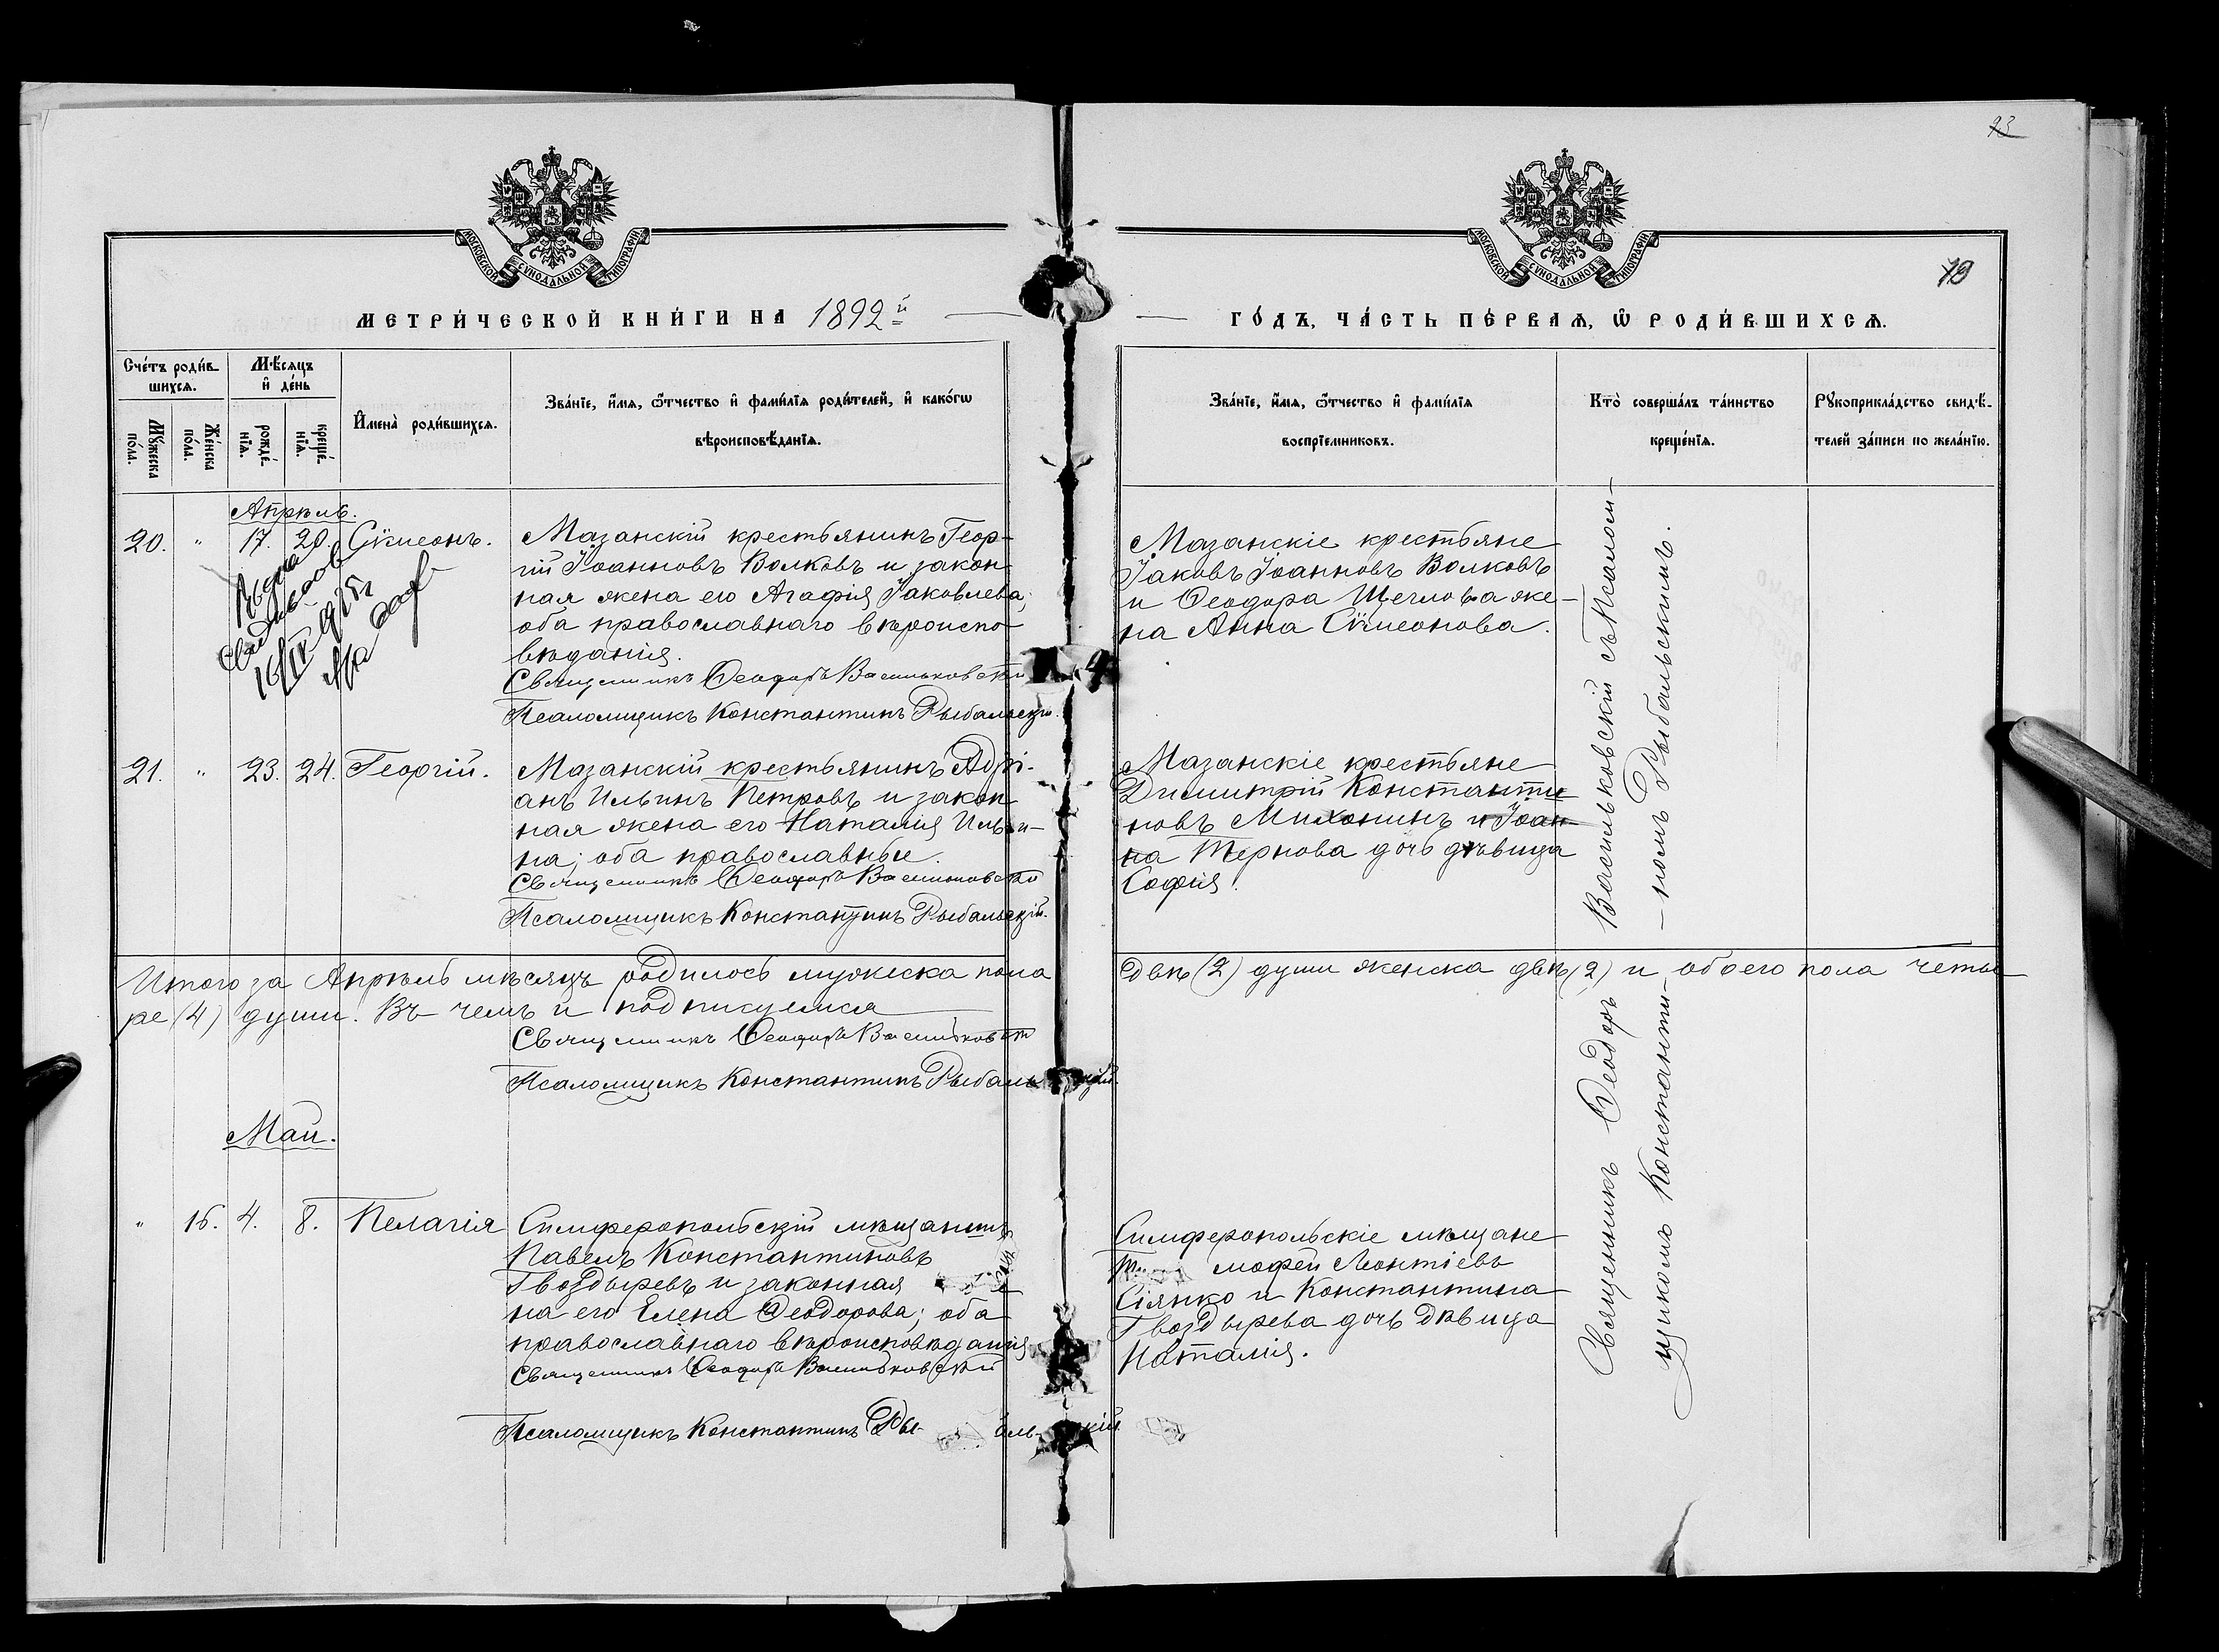 23
МОСКОВСКОЙ СѴНОДАЛЬНОЙ ТИПОГРАФІИ
МОСКОВСКОЙ СѴНОДАЛЬНОЙ ТИПОГРАФІИ
МЕТРИ́ЧЕСКОЙ КНИ́ГИ НА 1892й
ГО́ДЪ, ЧА́СТЬ ПЕ́РВАѦ, Ѡ҆ РОДИ́ВШИХСѦ.
Сче́тъ роди́в-
шихсѧ.
Мꙋ́жеска по́ла.
Же́нска по́ла.
Мѣ́сѧцъ
и҆ де́нь
рожде́-
нїѧ.
креще́-
нїѧ.
И҆мена̀ роди́вшихсѧ.
Зва́нїе, и҆́мѧ, ѻ҆́тчество и҆ фами́лїѧ роди́телей, и҆ како́гѡ
вѣроисповѣ́данїѧ.
Зва́нїе, и҆́мѧ, ѻ҆́тчество и҆ фами́лїѧ
воспрїе́мниковъ.
Кто̀ соверша́лъ та́инство
креще́нїѧ.
Рꙋкоприкла́дство свидѣ́-
телей за́писи по жела́нїю.
Апрѣль.
20. " 17. 20. Сѵмеонъ.
Мазанскій крестьянинъ Геор-
гій Іоанновъ Волковъ и закон-
ная жена его Агафія Іаковлева;
оба православнаго вѣроиспо-
вѣданія.
Священникъ Ѳеодоръ Васильковскій
Псаломщикъ Константинъ Рыбальскій.
Мазанскіе крестьяне
Іаковъ Іоанновъ Волковъ
и Ѳеодора Щеглова же-
на Анна Сѵмеонова.
21. " 23. 24. Георгій.
Мазанскій крестьянинъ Адрі-
анъ Ильинъ Петровъ и закон-
ная жена его Наталія Ильи-
на; оба православные.
Священникъ Ѳеодоръ Васильковскій
Псаломщикъ Константинъ Рыбальскій.
Мазанскіе крестьяне
Димитрій Константи-
новъ Михонинъ и Іоан-
на Тернова дочь дѣвица
Софія.
Итого за Апрѣль мѣсяцъ родилось мужеска пола
двѣ (2) души женска двѣ (2) и обоего пола четы-
ре (4) души. Въ чемъ и подписуемся
Священникъ Ѳеодоръ Васильковскій
Псаломщикъ Константинъ Рыбальскій
Май.
" 16. 4. 8. Пелагія
Симферопольскій мѣщанинъ
Павелъ Константиновъ
Гвоздыревъ и законная же-
на его Елена Ѳеодорова; оба
православнаго вѣроисповѣданія
Священникъ Ѳеодоръ Васильковскій
Псаломщикъ Константинъ Рыбальскій
Симферопольскіе мѣщане
Тимофей Леонтіевъ
Сіянко и Константина
Гвоздырева дочь дѣвица
Наталія.
Священникъ Ѳеодоръ Васильковскій съ Псалом-
щикомъ Константи-номъ Рыбальскимъ.